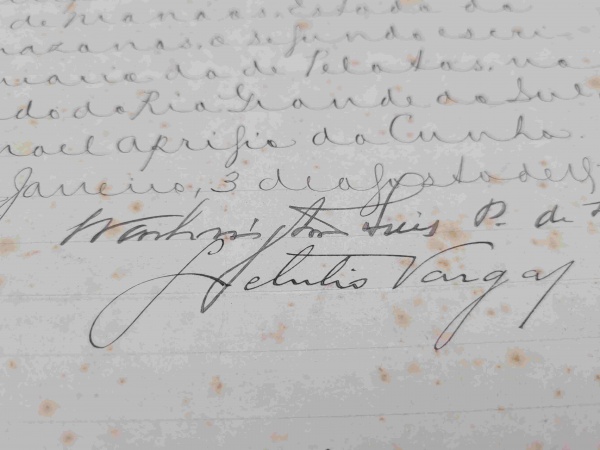 de Manáos, Estado da
mazonas, o segundo escri-
turario da de Pelotas, no
do do Rio Grande do Sul
noel Aprigio da Cunha.
Janeiro, 3 de agosto de
Washington Luis P. de
Getulio Vargas